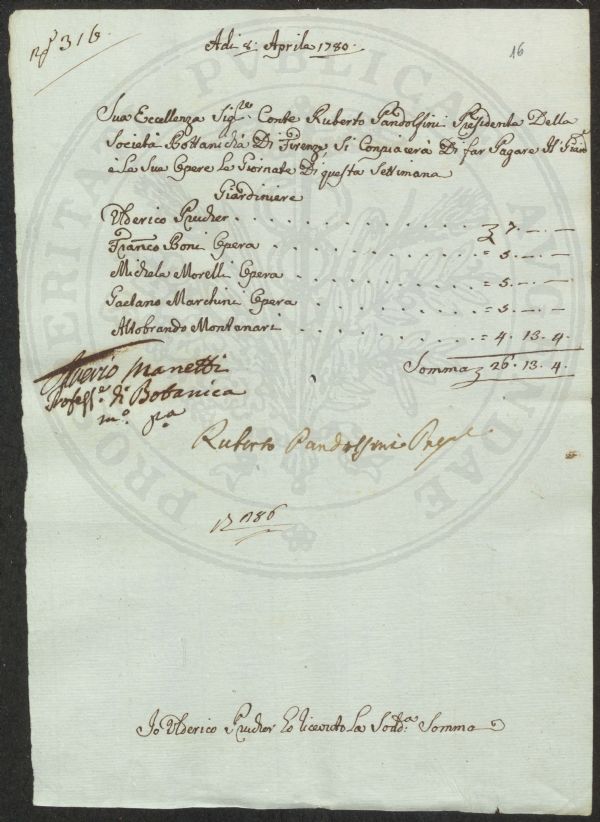 316
Adi 8. Aprile 1780.
16
Sua Eccellenza Sig.re Conte Ruberto Pandolfini Presidente Della
Società Bottanicha Di Firenze, Si Conpiacerà Di far Pagare Al Giard
e La Sua Opere Le Giornate Di questa Settimana
Giardiniere
Ulderico Prucher . . . . . . . . . . 7. —. —
Franco Boni Opera . . . . . . . . = 5. —. —
Michele Morelli Opera . . . . . . . = 5. —. —
Gaetano Marchini Opera . . . . . . = 5. —. —
Aldobrando Montenari . . . . . . . = 4. 13. 4.
Somma 26. 13. 4.
Saverio Manetti
Profess.e di Botanica
m.o p.a
Ruberto Pandolfini Presid.e
186
Io Ulderico Prucher ho riceuto La Sodd.a Somma
PROSPERITAS PUBLICA AUGENDAE